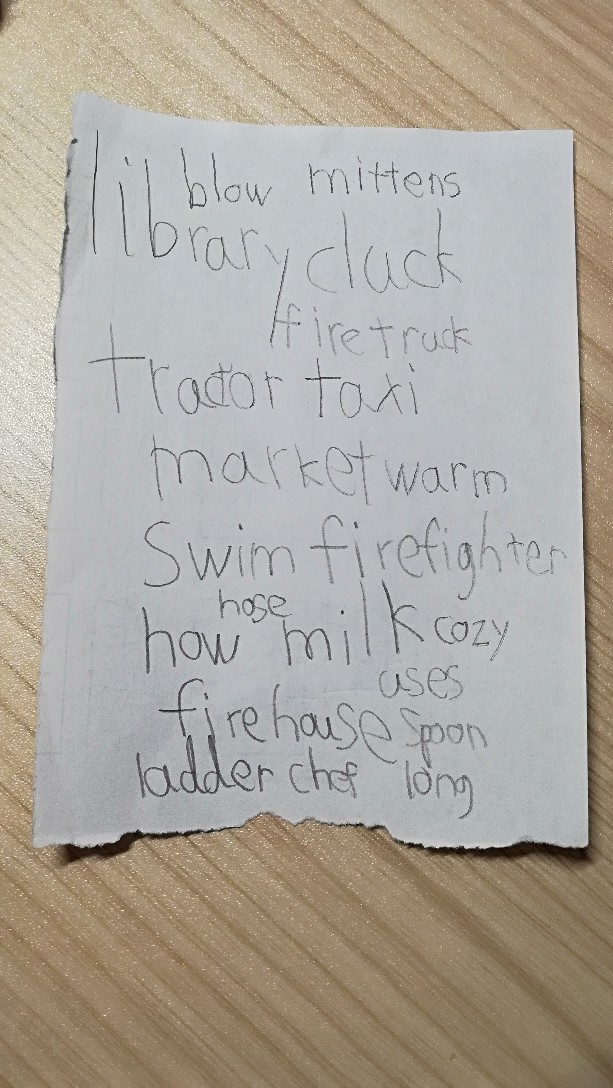 blow mittens
library cluck
firetruck
tractor taxi
market warm
Swim firefighter
hose
how milk cozy
uses
firehouse spoon
ladder chef long